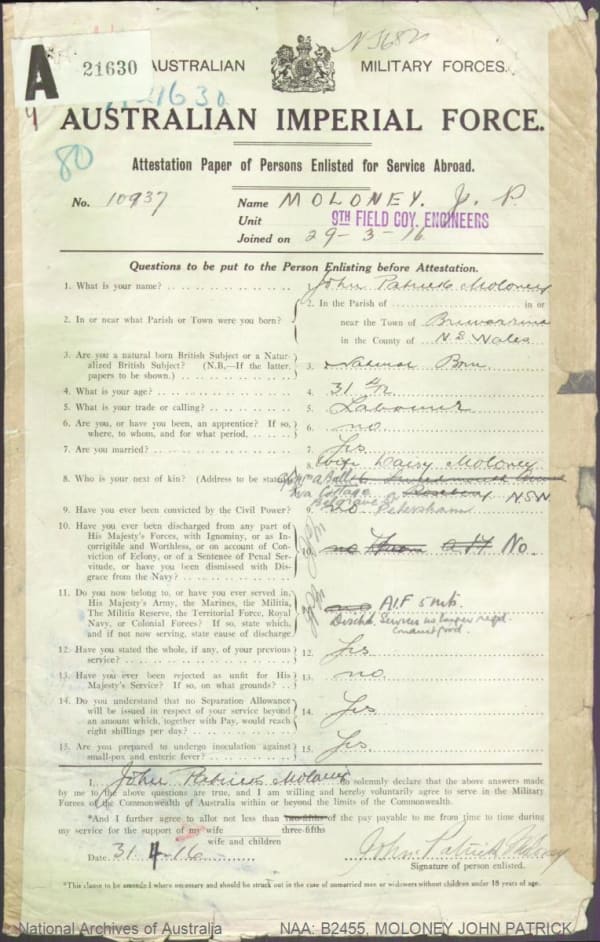 N5682
A 21630
AUSTRALIAN MILITARY FORCES.
AUSTRALIAN IMPERIAL FORCE.
80
Attestation Paper of Persons Enlisted for Service Abroad.
No. 10937 Name MOLONEY. J. P.
Unit 9TH FIELD COY. ENGINEERS
Joined on 29-3-16
Questions to be put to the Person Enlisting before Attestation.
1. What is your name? John Patrick Moloney
2. In or near what Parish or Town were you born? 2. In the Parish of in or
near the Town of Brewarrina
in the County of N.S. Wales
3. Are you a natural born British Subject or a Natur-
alized British Subject? (N.B,—If the latter, 3. Natural Born
papers to be shown.)
4. What is your age? 4. 31
5. What is your trade or calling? 5. Labourer
6. Are you, or have you been, an apprentice? If so, 6. no
where, to whom, and for what period,
7. Are you married? 7. Yes
8. Who is your next of kin? (Address to be stated) 8. Wife Daisy Moloney
Cottage Rosebery NSW
Belgrave
9. Have you ever been convicted by the Civil Power? 9. no Petersham
10. Have you ever been discharged from any part of
His Majesty's Forces, with Ignominy, or as In-
corrigible and Worthless, or on account of Con- 10. no No.
viction of Felony, or of a Sentence of Penal Ser-
vitude, or have you been Dismissed with Dis-
grace from the Navy?
11. Do you now belong to, or have you ever served in,
His Majesty's Army, the Marines, the Militia, AIF 5 mts.
The Militia Reserve, the Territorial Force, Royal Dischd. Services no longer reqd.
Navy, or Colonial Forces? If so, state which, conduct good.
and if not now serving, state cause of discharge
12. Have you stated the whole, if any, of your previous 12. Yes
service?
13. Have you ever been rejected as unfit for His 13. no
Majesty's Service? If so, on what grounds?
14. Do you understand that no Separation Allowance
will be issued in respect of your service beyond 14. Yes
an amount which, together with Pay, would reach
eight shillings per day?
15. Are you prepared to undergo inoculation against 15. Yes
small-pox and enteric fever?
I, John Patrick Moloney do solemnly declare that the above answers made
by me to the above questions are true, and I am willing and hereby voluntarily agree to serve in the Military
Forces of the Commonwealth of Australia within or beyond the limits of the Commonwealth.
*And I further agree to allot not less than two-fifths of the pay payable to me from time to time during
three-fifths
my service for the support of my wife
wife and children
Date 31 4 16 John Patrick Moloney
Signature of person enlisted.
*This clause to be amended where necessary and should be struck out in the case of unmarried men or widowers without children under 18 years of age.
National Archives of Australia NAA: B2455, MOLONEY JOHN PATRICK